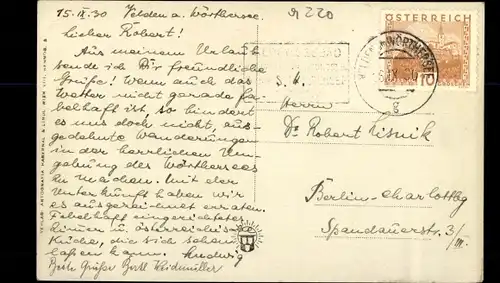 15. IX. 30 Velden a. Wörthersee.
Lieber Robert!
Aus meinem Urlaub
sende ich Dir freundliche
Grüße! Wenn auch das
Wetter nicht gerade fa-
belhaft ist, so hindert
es uns doch nicht, aus-
gedehnte Wanderungen
in der herrlichen Um-
gebung des Wörthersees
zu machen. Mit der
Unterkunft haben wir
es ausgezeichnet erraten.
Fabelhaft eingerichtetes
u. österreichische
Küche, die sich sehen
lassen kann. Ludwig
Beste Grüße Bertl
220
ÖSTERREICH
10
GROSCHEN
WÖRTHERSEE
IX. 30
g
S. H.
Herrn
Dr. Robert
Berlin-Charlottbg
Spandauerstr. 3/
III.